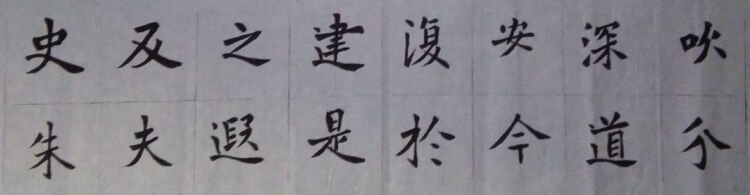 史反之建復安深吹
朱夫遐是於今道介